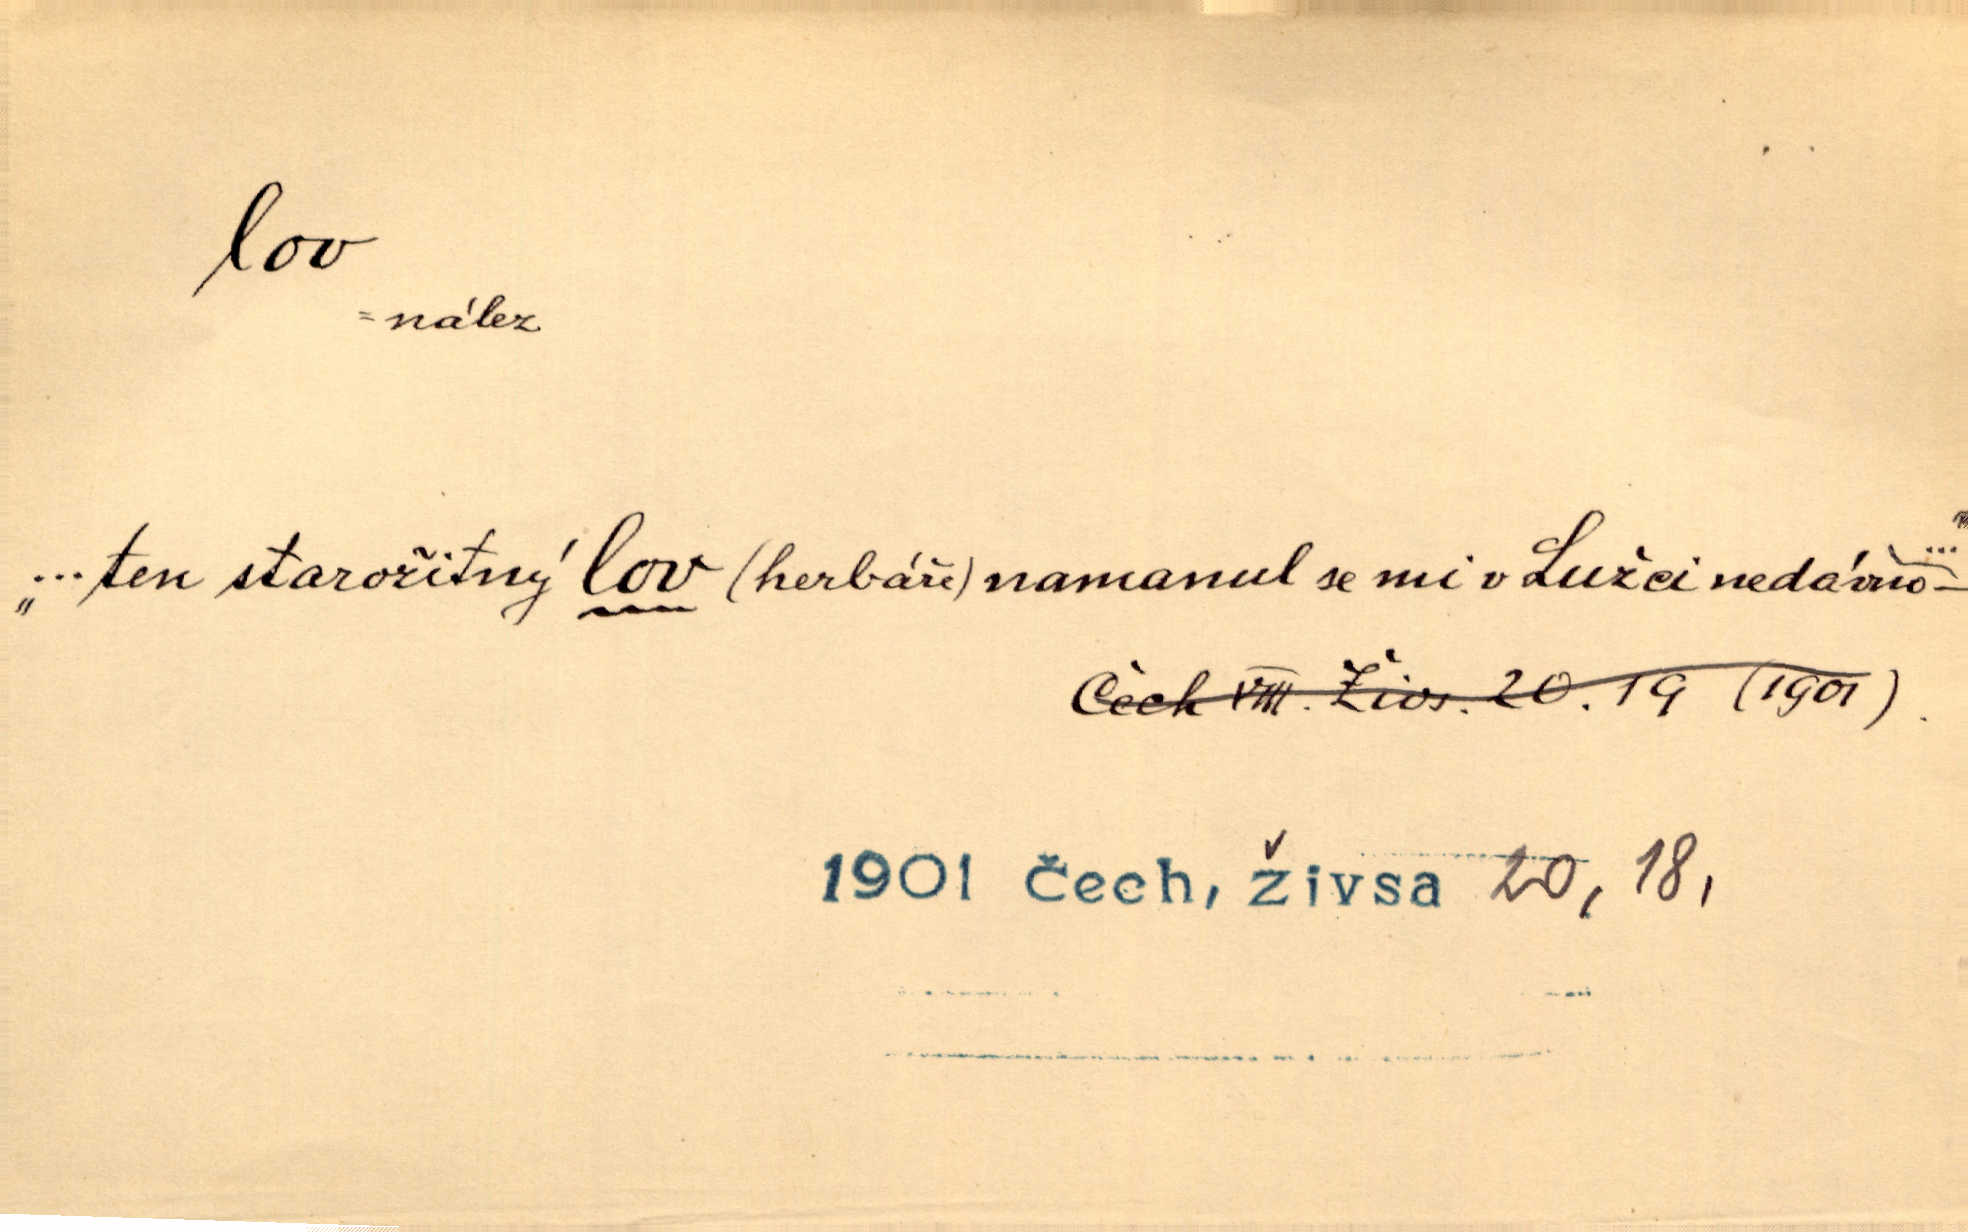 lov
= nález
„... ten starožitný lov (herbáře) namanul se mi v Lužci nedávno ..."
Čech VIII. Živs. 20. 19 (1901).
1901 Čech, živsa 20, 18,